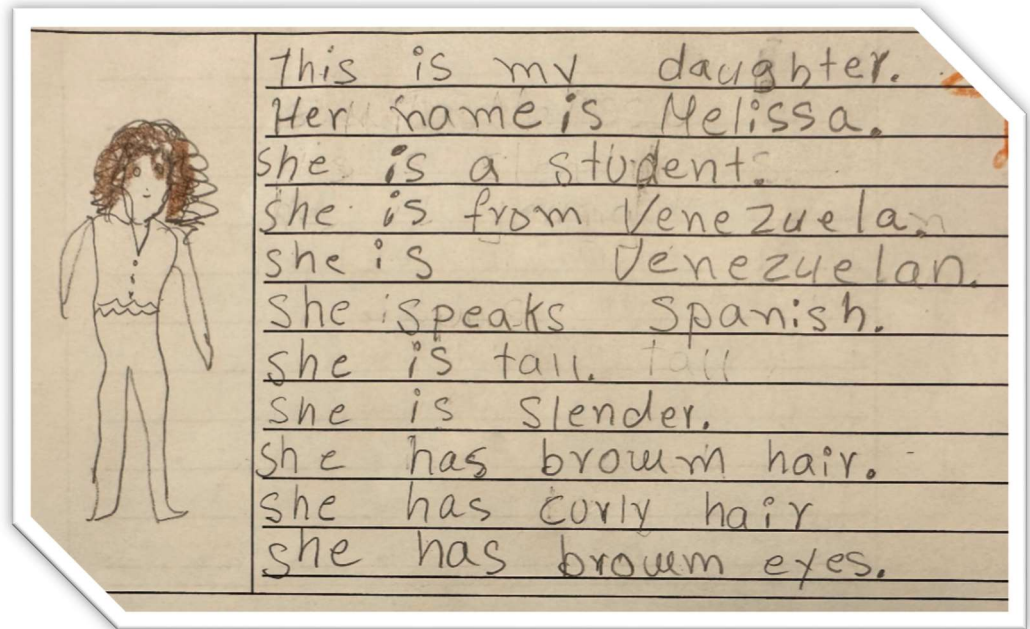 This is my daughter.
Her name is Melissa.
she is a student.
she is from Venezuela.
she is Venezuelan.
she speaks Spanish.
she is tall. tall
she is Slender.
she has browm hair.
she has curly hair
she has browm eyes.